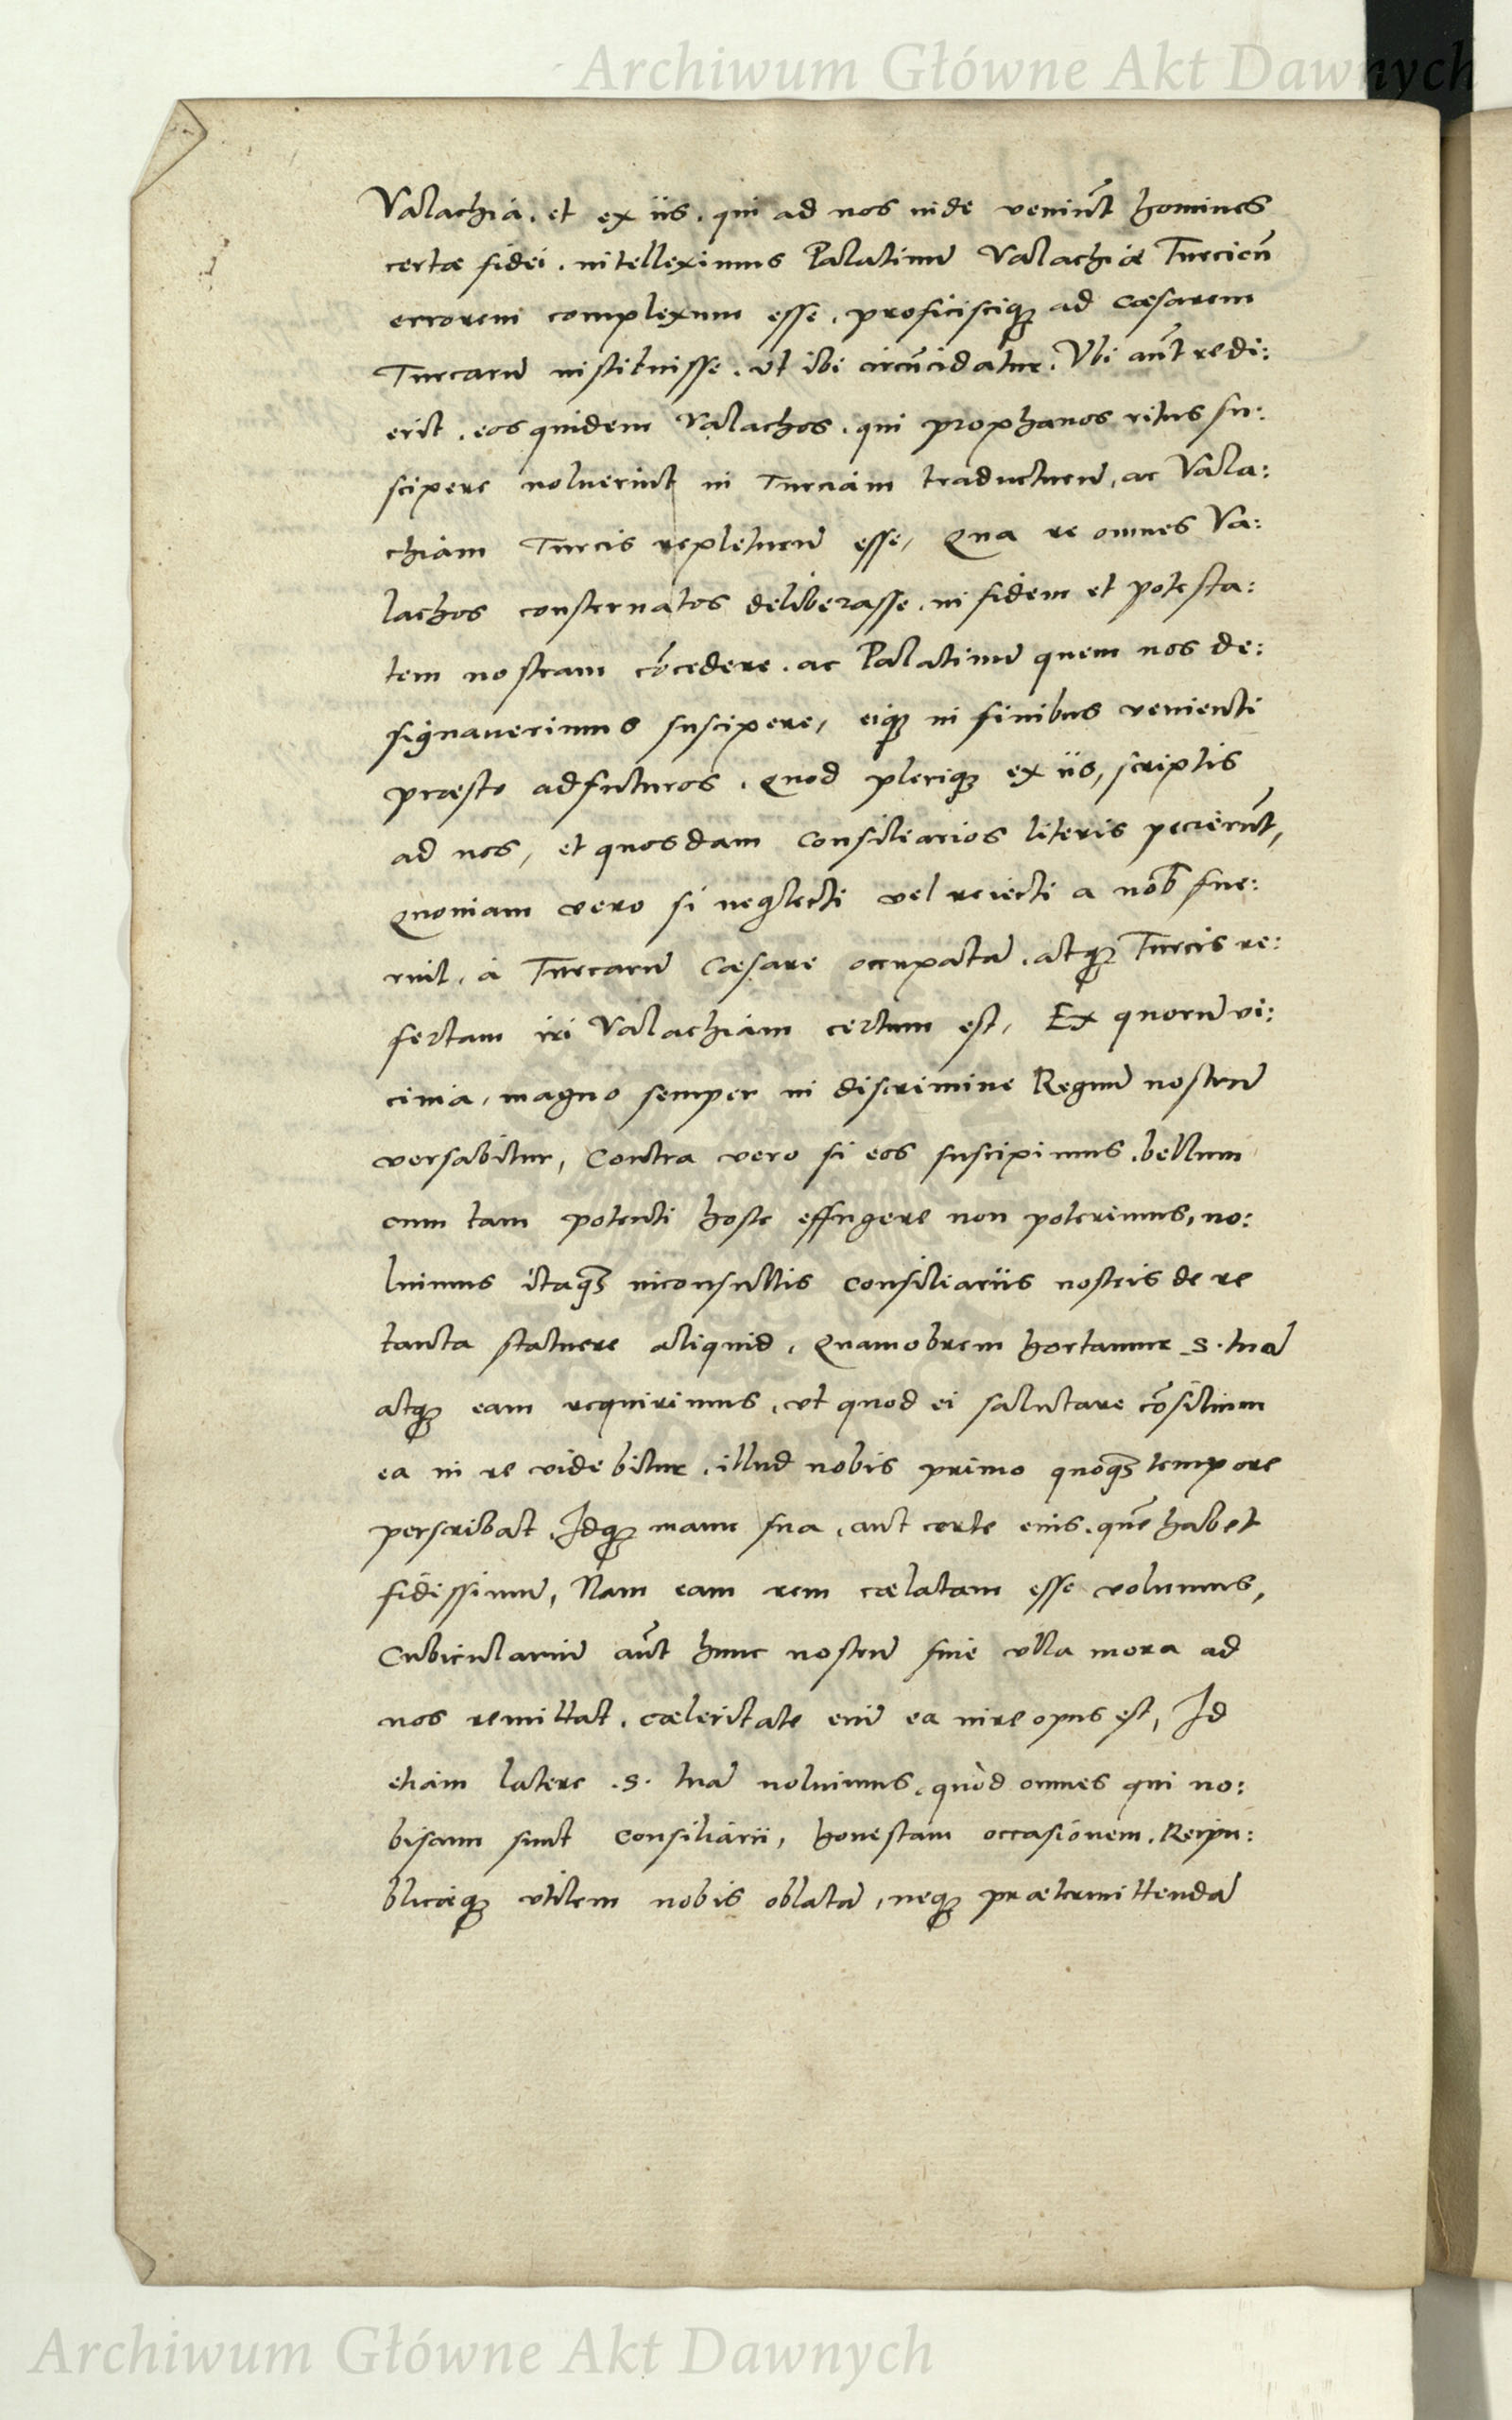 Archiwum Główne Akt Dawnych
Valachia. et ex iis. qui ad nos inde veniūt homines
certæ fidei. intelleximus Palatinū Valachiæ Turcicū
errorem complexum esse, proficisciq; ad Cæsarem
Turcarū instituisse. vt ibi circūcidatur. Vbi aūt redi:
erit. eos quidem Valachos. qui prophanos ritus su:
scipere noluerint in Turciam traducturū, ac Vala:
chiam Turcis repleturū esse, Qua re omnes Va:
lachos consternatos deliberasse. in fidem et potesta:
tem nostram cōcedere. ac Palatinū quem nos de:
signauerimus suscipere, eiq; in finibus venienti
præsto adfuturos. Quod pleriq; ex iis, scriptis
ad nos, et quosdam Consiliarios literis pecierūt,
Quoniam vero si neglecti vel reiecti a nob fue:
rint, à Turcarū Cæsare occupatā. atq; Turcis re:
fertam iri Valachiam certum est, Ex quorū vi:
cinia, magno semper in discrimine Regnū nostrū
versabitur, Contra vero si eos suscipimus. bellum
cum tam potenti hoste effugere non poterimus, no:
luimus itaq; inconsultis Consiliariis nostris de re
tanta statuere aliquid, Quamobrem hortamur S. tuā
atq; eam requirimus, vt quod ei salutare cōsilium
ea in re videbitur. illud nobis primo quoq; tempore
perscribat. Idq; manu sua, aut certe eius. quē habet
fidissimū, Nam eam rem cælatam esse volumus,
Cubiculariū aūt hunc nostrū sine vlla mora ad
nos remittat. cæleritate enī ea in re opus est, Id
etiam latere .S. tuā noluimus, quòd omnes qui no:
biscum sunt Consiliarii, honestam occasionem. Reipu:
blicæq; vtilem nobis oblatā, neq; prætermittendā
Archiwum Główne Akt Dawnych